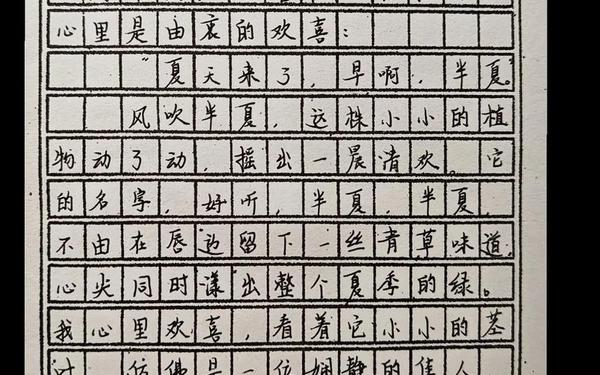 心里是由衷的欢喜：
“夏天来了，早啊，半夏。”
风吹半夏，这株小小的植
物动了动，摇出一晨清欢。它
的名字，好听，半夏，半夏，
不由在唇边留下一丝青草味道，
心尖同时漾出整个夏季的绿。
我心里欢喜，看着它小小的茎
叶，仿佛是一位娴静的佳人